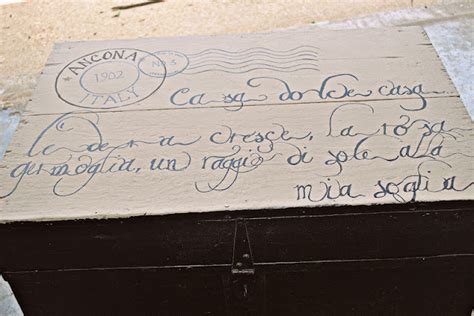 ANCONA
1902
ITALY
No 3
Casa dolce casa
l'edera cresce, la rosa
germoglia, un raggio di sole alla
mia soglia